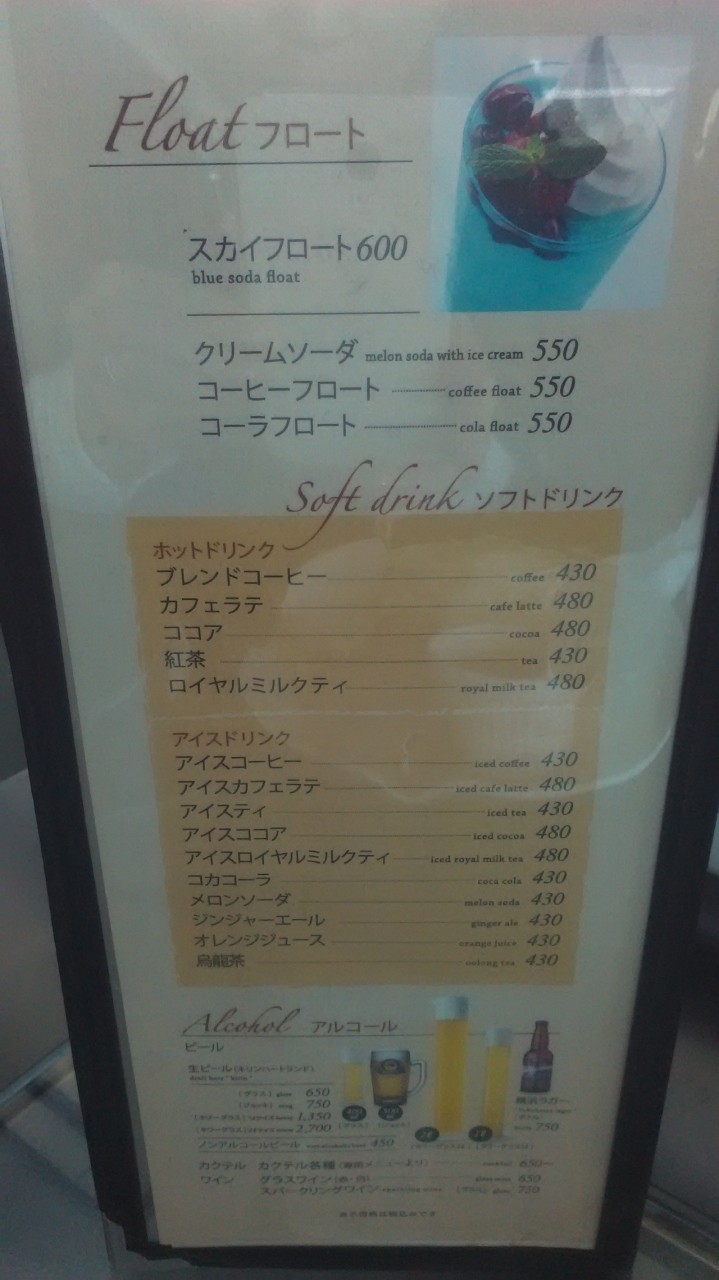 Float フロート
スカイフロート 600
blue soda float
クリームソーダ melon soda with ice cream 550
コーヒーフロート coffee float 550
コーラフロート cola float 550
Soft drink ソフトドリンク
ホットドリンク
ブレンドコーヒー coffee 430
カフェラテ cafe latte 480
ココア cocoa 480
紅茶 tea 430
ロイヤルミルクティ royal milk tea 480
アイスドリンク
アイスコーヒー iced coffee 430
アイスカフェラテ iced cafe latte 480
アイスティ iced tea 430
アイスココア iced cocoa 480
アイスロイヤルミルクティ iced royal milk tea 480
コカコーラ coca cola 430
メロンソーダ melon soda 430
ジンジャーエール ginger ale 430
オレンジジュース orange juice 430
烏龍茶 oolong tea 430
Alcohol アルコール
ビール
生ビール (キリンハートランド)
(グラス) glass 650
(ジョッキ) mug 750
1,350
2,700
ノンアルコールビール 450
横浜ラガー
750
カクテル カクテル各種 (専用メニューより) cocktail 650~
ワイン グラスワイン (赤・白) glass wine 650
スパークリングワイン sparkling wine (グラス) glass 750
表示価格は税込みです